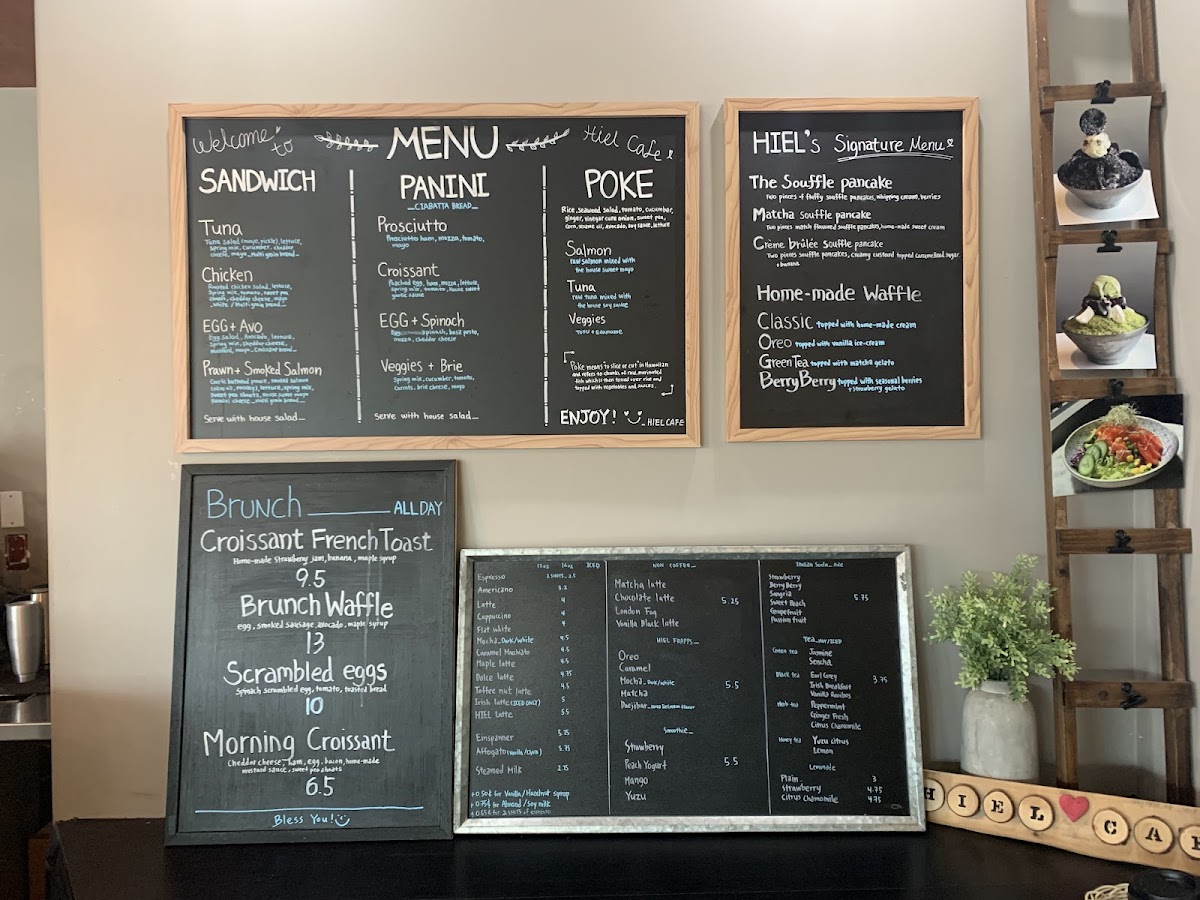 Welcome to
MENU
Hiel Cafe
SANDWICH
Tuna
Tuna salad (mayo, pickle), lettuce,
spring mix, cucumber, cheddar
cheese, mayo _Multi grain bread_
Chicken
Roasted chicken salad, lettuce,
spring mix, tomato, sweet pea
shoots, cheddar cheese, mayo
_white / Multigrain bread_
EGG + Avo
Egg salad, Avocado, lettuce,
spring mix, cheddar cheese,
mustard, mayo _Croissant bread_
Prawn + Smoked Salmon
Garlic buttered prawn, smoked salmon
lettuce, spring mix,
sweet pea shoots, house sweet mayo
_multi grain bread_
Serve with house salad_
PANINI
_CIABATTA BREAD_
Prosciutto
Prosciutto ham, mozza, tomato,
mayo
Croissant
Poached egg, ham, mozza, lettuce,
spring mix, tomato, house sweet
garlic sauce
EGG + Spinach
Egg, spinach, basil pesto,
mozza, cheddar cheese
Veggies + Brie
Spring mix, cucumber, tomato,
carrots, brie cheese, mayo
Serve with house salad_
POKE
Rice, seaweed salad, tomato, cucumber,
ginger, vinegar cure onion, sweet pea,
corn, sesame oil, avocado, soy sauce, lettuce
Salmon
raw salmon mixed with
the house sweet mayo
Tuna
raw tuna mixed with
the house soy sauce
Veggies
Tofu + Edamame
Poke means to slice or cut in Hawaiian
and refers to chunks of raw, marinated
fish which is then tossed over rice and
topped with vegetables and sauces.
ENJOY! _HIEL CAFE
HIEL's Signature Menu
The Souffle pancake
Two pieces of fluffy souffle pancakes, whipping cream, berries
Matcha souffle pancake
Two pieces match flavored souffle pancakes, home-made sweet cream
Crème brûlée souffle pancake
Two pieces souffle pancakes, creamy custard topped caramelized sugar
+ banana
Home-made Waffle
Classic topped with home-made cream
Oreo topped with vanilla ice-cream
Green Tea topped with matcha gelato
BerryBerry topped with seasonal berries
+ strawberry gelato
Brunch ALLDAY
Croissant French Toast
Home-made strawberry jam, banana, maple syrup
9.5
Brunch Waffle
egg, smoked sausage, avocado, maple syrup
13
Scrambled eggs
Spinach scrambled egg, tomato, toasted bread
10
Morning Croissant
Cheddar cheese, ham, egg, bacon, home-made
mustard sauce, sweet pea shoots
6.5
Bless You!
12oz 16oz ICED
Espresso 2 SHOTS, 2.5
Americano 3.2
Latte 4
Cappuccino 4
Flat white 4
Mocha_Dark/white 4.5
Caramel Machiato 4.5
Maple latte 4.5
Dolce latte 4.75
Toffee nut latte 4.5
Irish latte (ICED ONLY) 5
HIEL latte 5.5
Einspanner 5.25
Affogato 5.75
Steamed Milk 2.75
+ 0.50¢ for Vanilla/Hazelnut syrup
+ 0.75¢ for Almond/Soy milk
+ 0.65¢ for 2 shots of espresso
NON COFFEE_
Matcha latte
Chocolate latte 5.25
London Fog
Vanilla Black latte
HIEL FRAPPS_
Oreo
Caramel
Mocha_Dark/white 5.5
Matcha
Smoothie_
Strawberry
Peach Yogurt 5.5
Mango
Yuzu
Italian Soda_Ade
Strawberry
Berry Berry
Sangria 5.75
Sweet Peach
Grapefruit
Passion fruit
Tea_HOT/ICED
Green tea Jasmine
Sencha
Black tea Earl Grey 3.75
Irish Breakfast
Vanilla Rooibos
Herb tea Peppermint
Ginger Fresh
Citrus Chamomile
Honey tea Yuzu citrus
Lemon
Lemonade
Plain 3
Strawberry 4.75
Citrus Chamomile 4.75
HIEL CAF